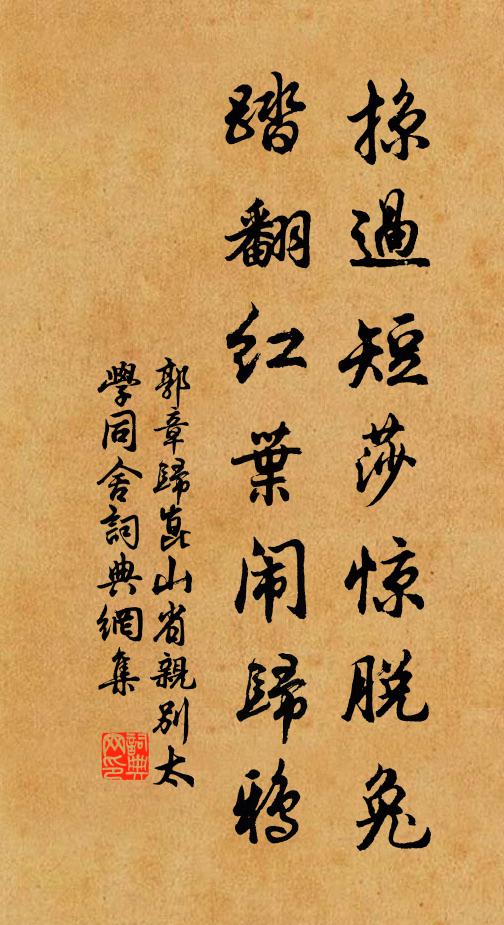 掠過短莎惊脱兔
踏翻红葉闹歸鴉
郭章歸崑山省親別太
學同舍詞典網集
詞典网印